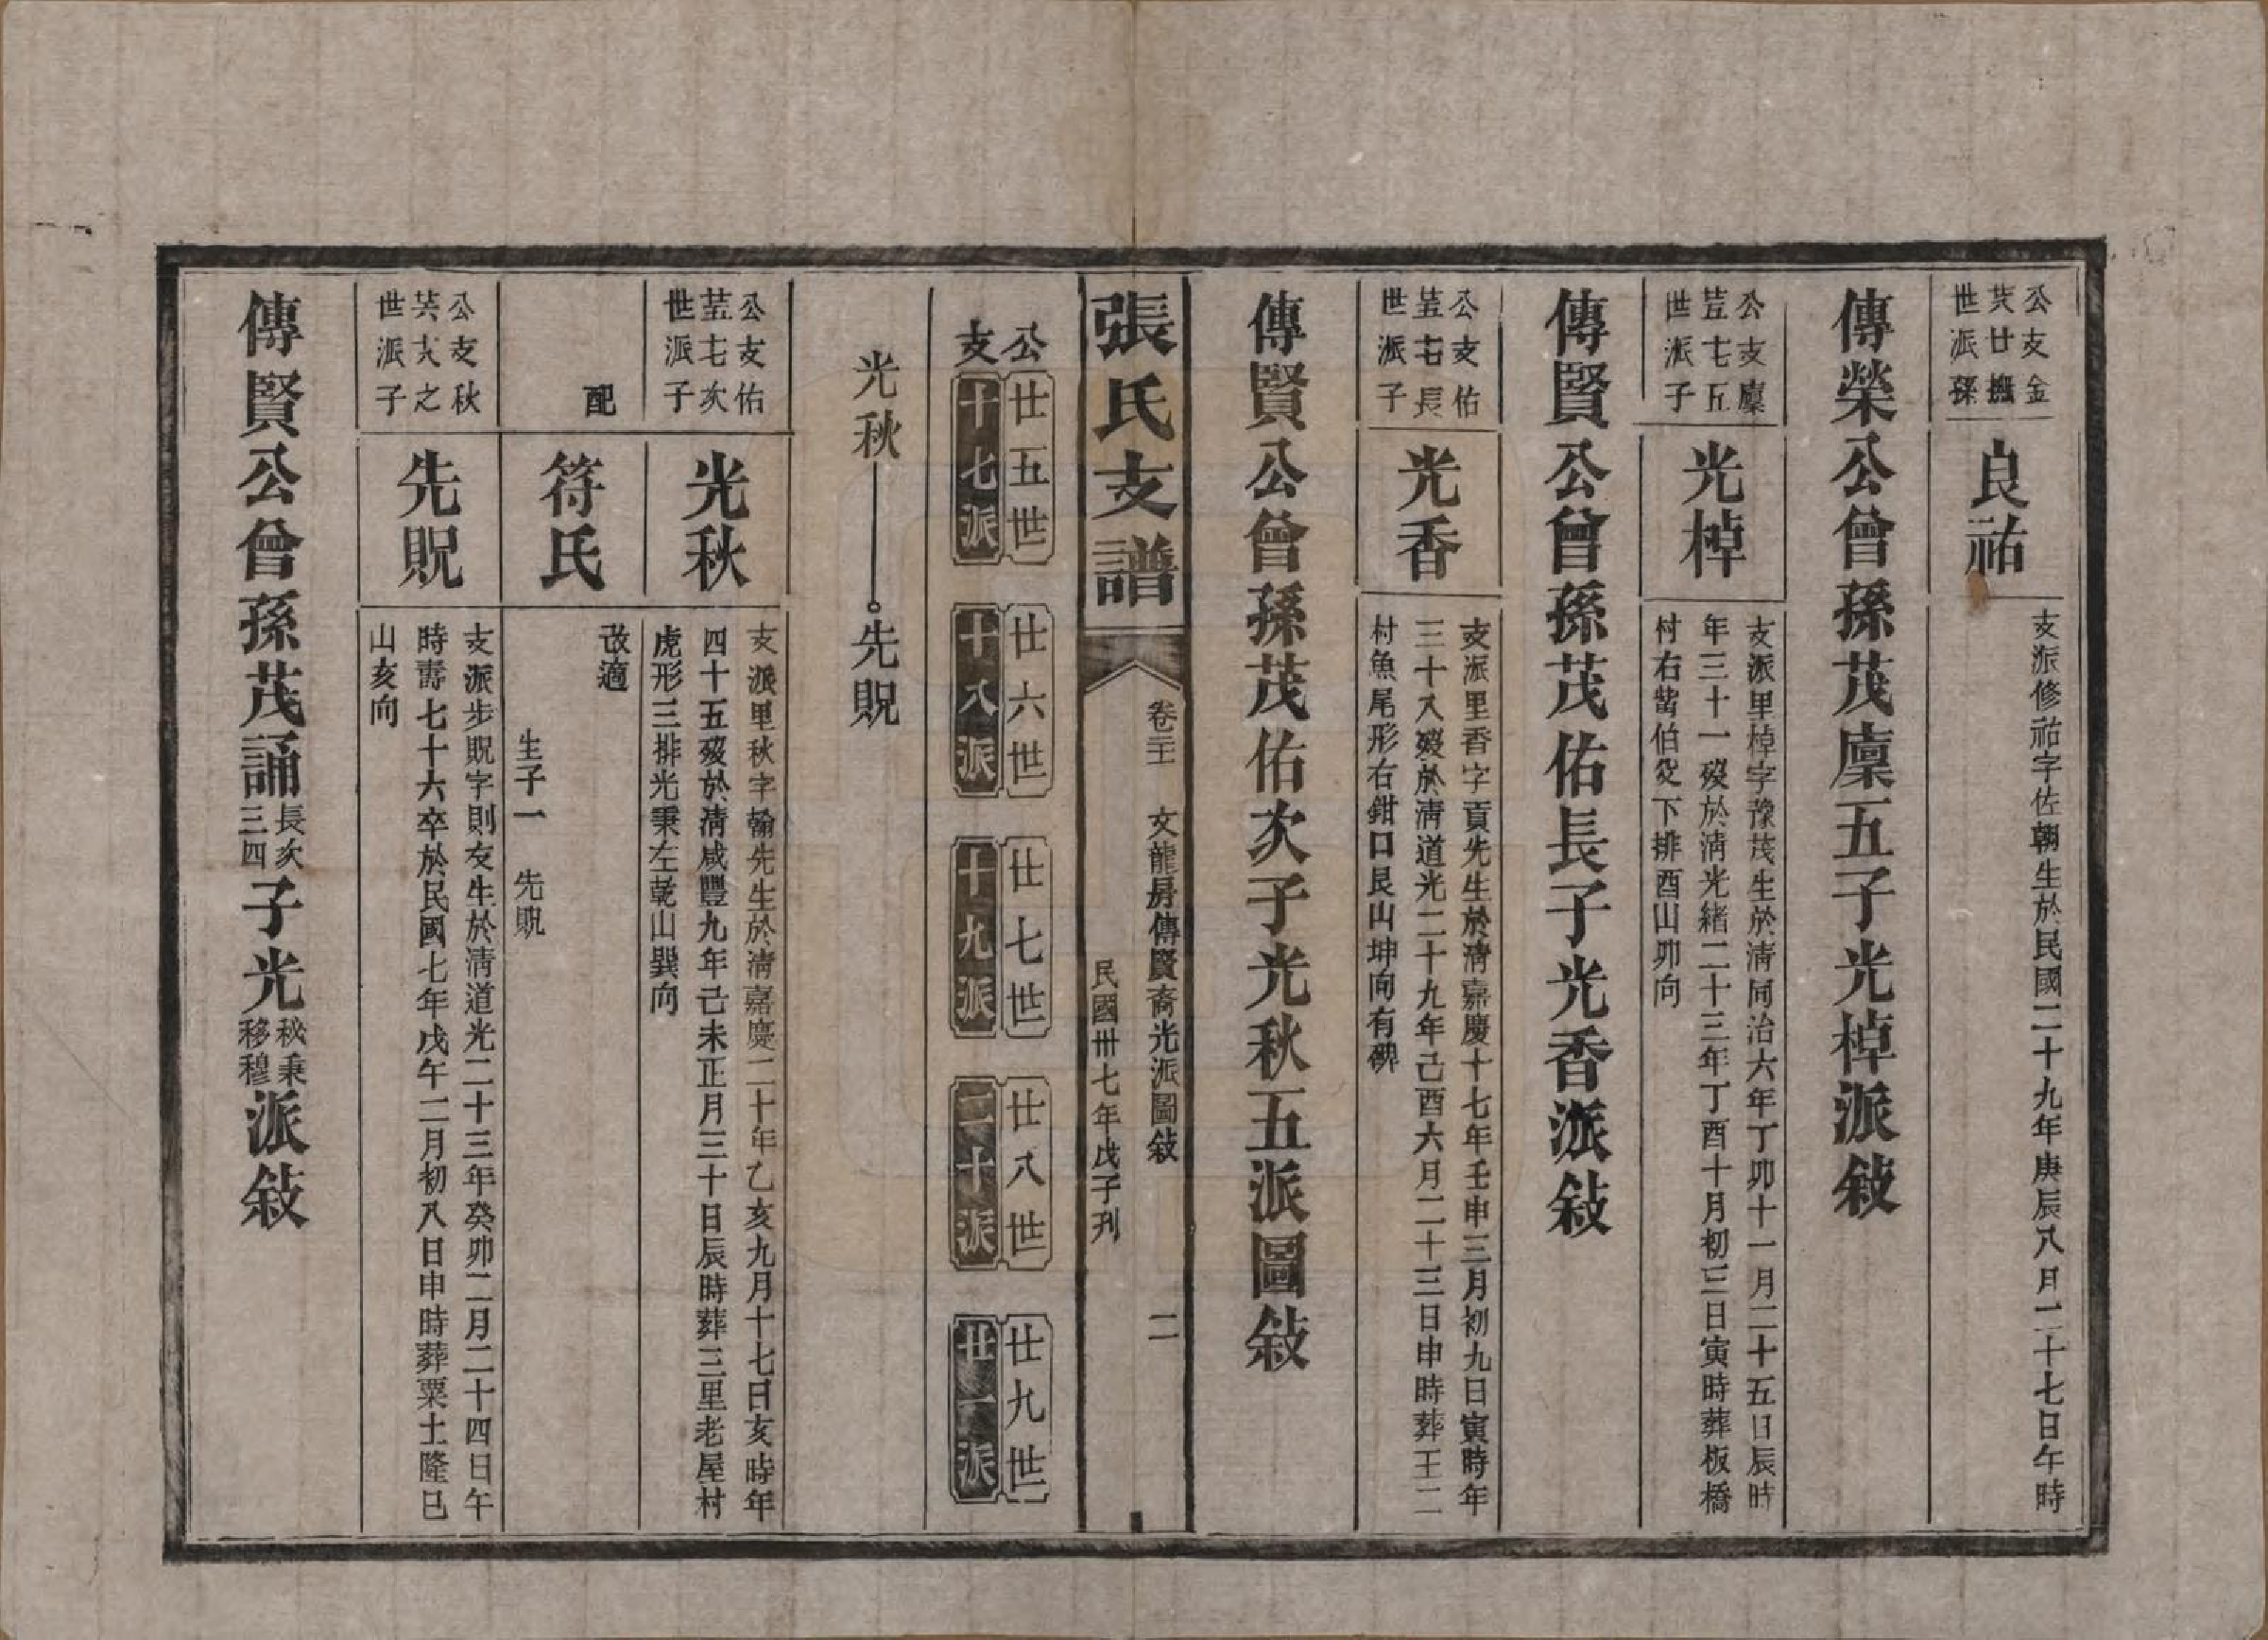 公支金
世派孫
良祐
支派修祐字佐朝生於民國二十九年庚辰八月二十七日午時
傳榮公曾孫茂廩五子光棹派敍
公支廩
世派子
光棹
支派里棹字豫茂生於淸同治六年丁卯十一月二十五日辰時
年三十一歿於淸光緒二十三年丁酉十月初三日寅時葬板橋
村右 伯 下排酉山卯向
傳賢公曾孫茂佑長子光香派敍
公支佑
世派子
光香
支派里香字貢先生於淸嘉慶十七年壬申三月初九日寅時年
三十八歿於淸道光二十九年己酉六月二十三日申時葬王二
村魚尾形右鉗口艮山坤向有碑
傳賢公曾孫茂佑次子光秋五派圖敍
張氏支譜
文龍房傳賢裔光派圖敍
二
民國卅七年戊子刋
公 廿五世 廿六世 廿七世 廿八世 廿九世
支 十七派 十八派 十九派 二十派 廿一派
光秋 先貺
公支佑
世派子
光秋
支派里秋字翰先生於淸嘉慶二十年乙亥九月十七日亥時年
四十五歿於淸咸豐九年己未正月三十日辰時葬三里老屋村
虎形三排光秉左乾山巽向
配
符氏
改適
生子一 先貺
公支秋
世派子
先貺
支派步貺字則友生於淸道光二十三年癸卯二月二十四日午
時壽七十六卒於民國七年戊午二月初八日申時葬粟土隆巳
山亥向
傳賢公曾孫茂誦長次三四子光秋秉移穆派敍